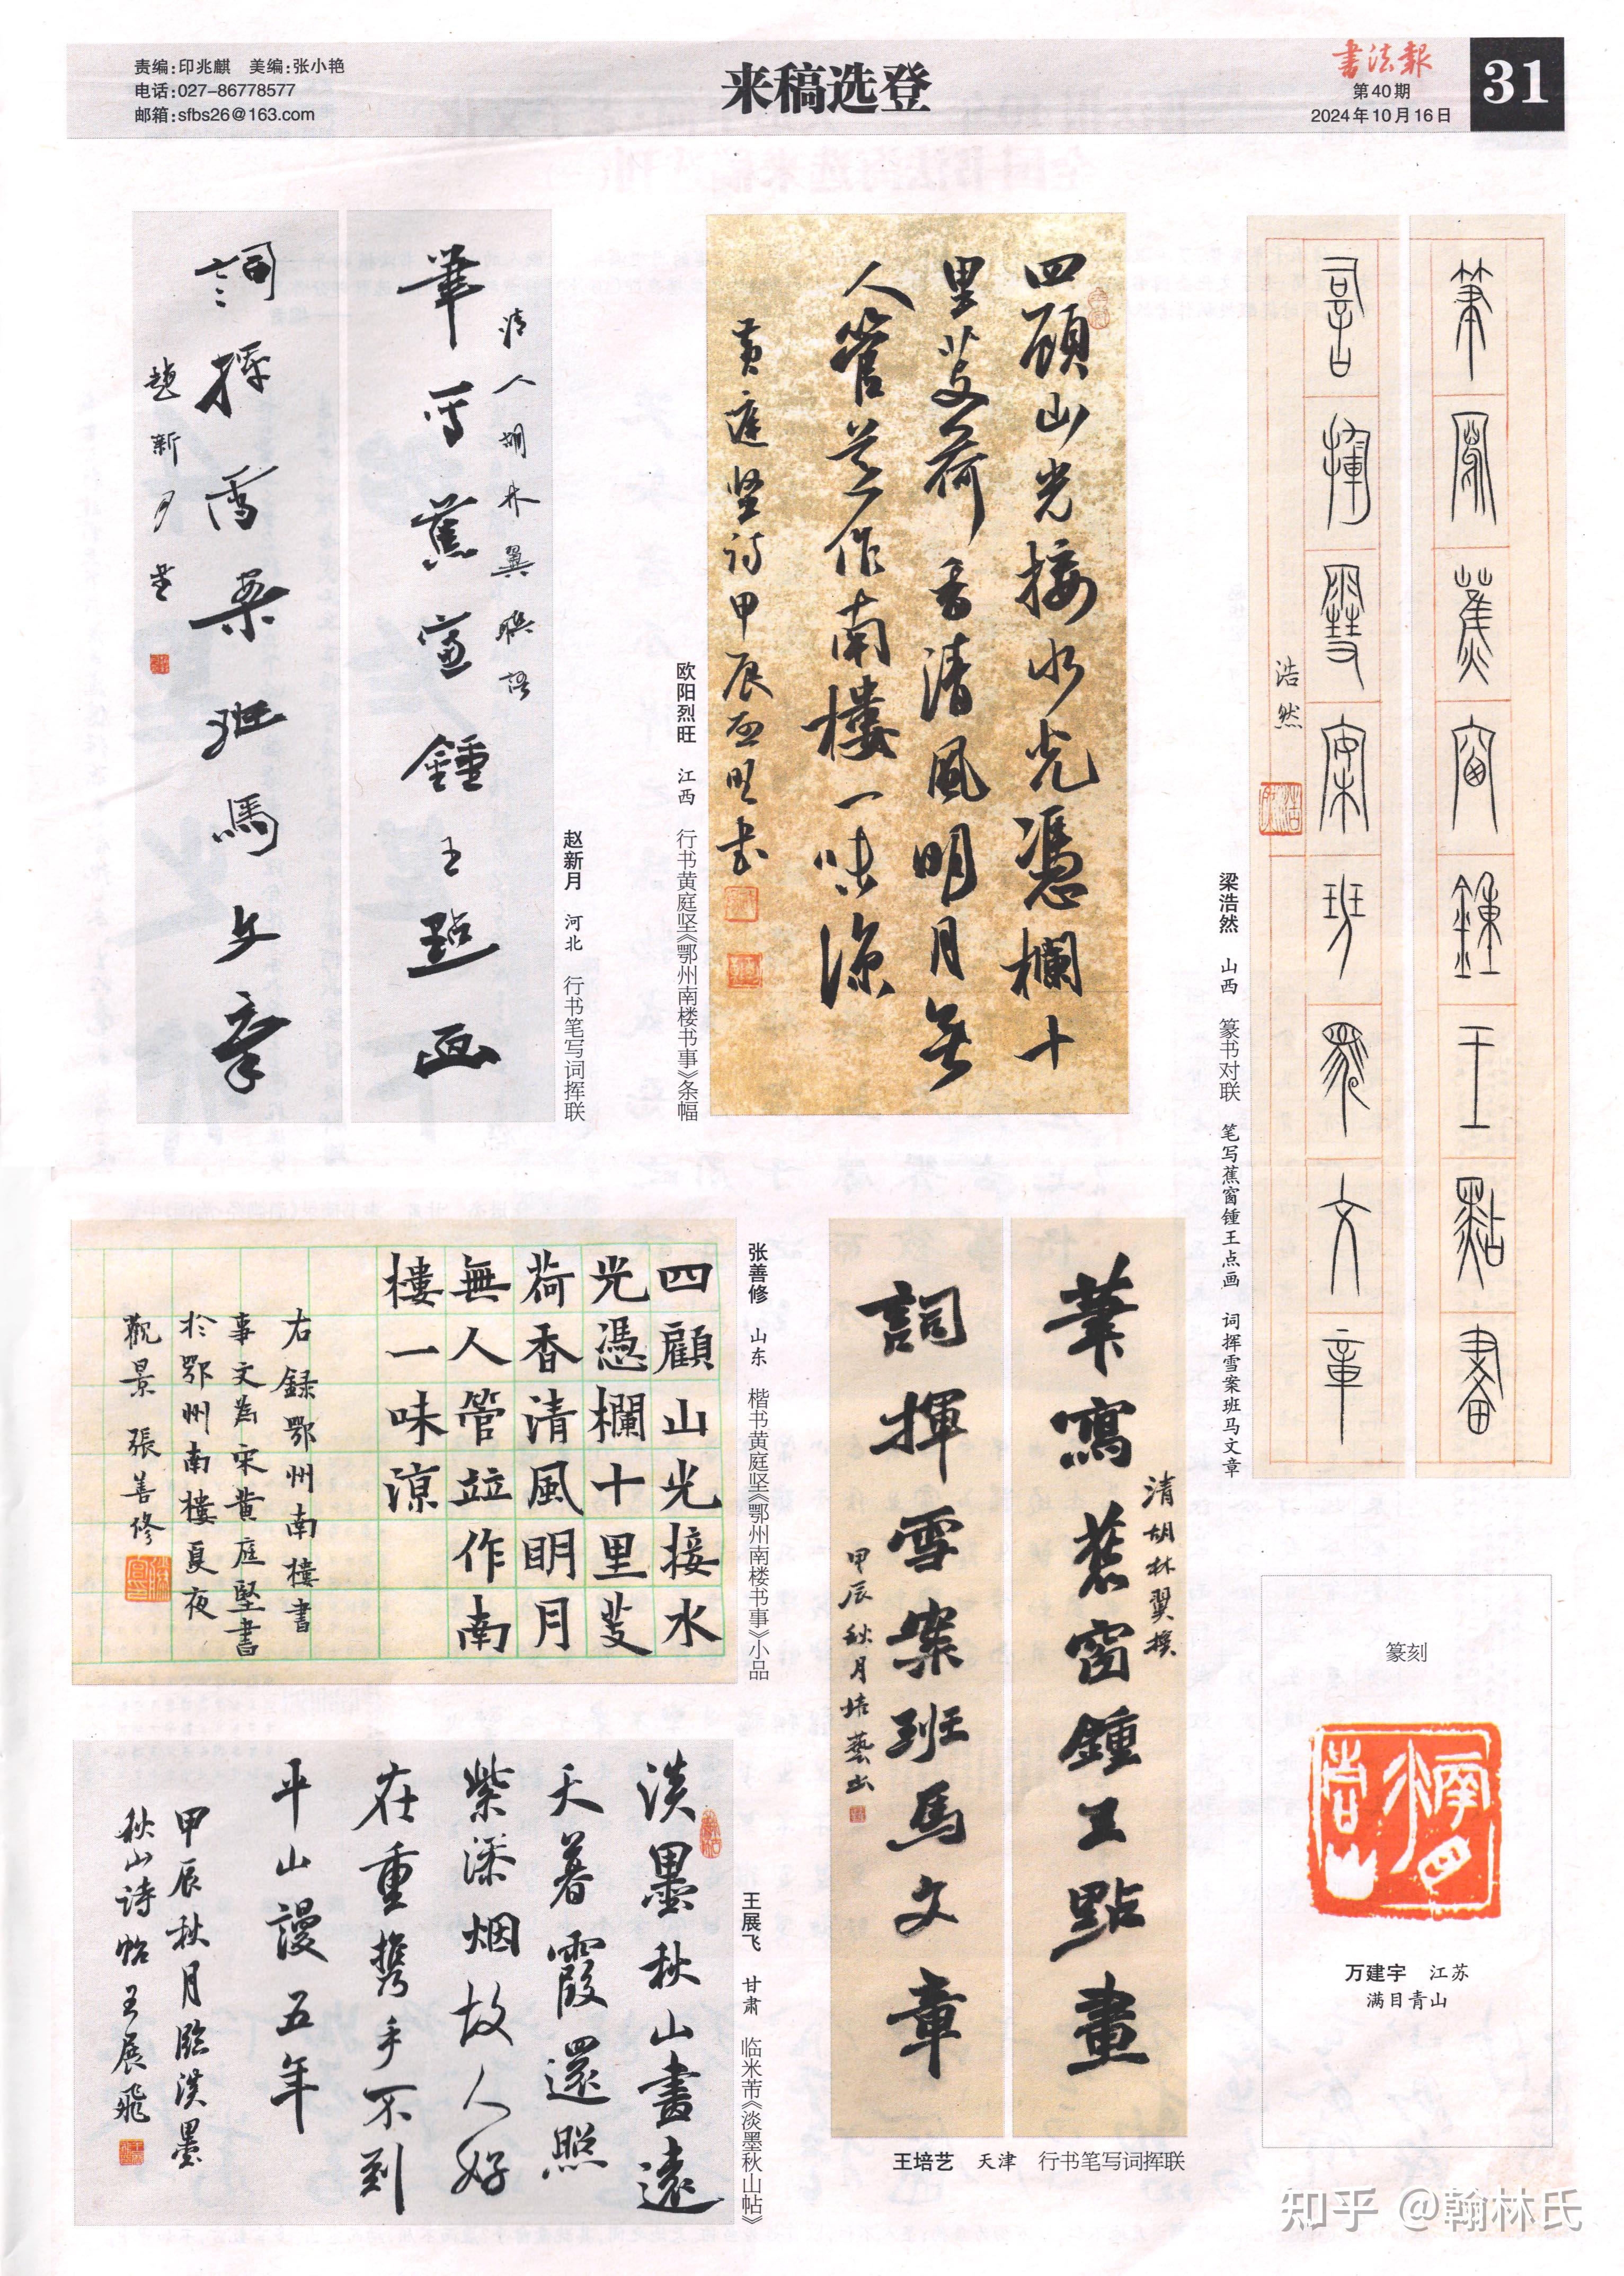 责编:印兆麒 美编:张小艳
电话:027-86778577
邮箱:sfbs26@163.com
来稿选登
书法报
第40期
2024年10月16日
31
筆寫蕉窗鍾王點畫
詞揮雪案班馬文章
浩然
梁浩然 山西 篆书对联 笔写蕉窗锺王点画 词挥雪案班马文章
四顧山光接水光憑欄十
里芰荷香清風明月無
人管並作南樓一味涼
黄庭坚诗甲辰烈旺书
欧阳烈旺 江西 行书黄庭坚《鄂州南楼书事》条幅
清人胡林翼联語
筆写蕉窗鍾王點画
詞揮雪案班馬文章
趙新月书
赵新月 河北 行书笔写词挥联
四顧山光接水
光憑欄十里芰
荷香清風明月
無人管竝作南
樓一味涼
右録鄂州南樓書
事文為宋黄庭堅書
於鄂州南樓夏夜
觀景 張善修
张善修 山东 楷书黄庭坚《鄂州南楼书事》小品
清胡林翼撰
筆寫蕉窗鍾王點畫
詞揮雪案班馬文章
甲辰秋月培藝出
王培艺 天津 行书笔写词挥联
淡墨秋山書遠
天暮霞還照
紫添烟故人好
在重携手不到
平山謾五年
甲辰秋月臨淡墨
秋山诗帖王展飛
王展飞 甘肃 临米芾《淡墨秋山帖》
篆刻
万建宇 江苏
满目青山
知乎 @翰林氏